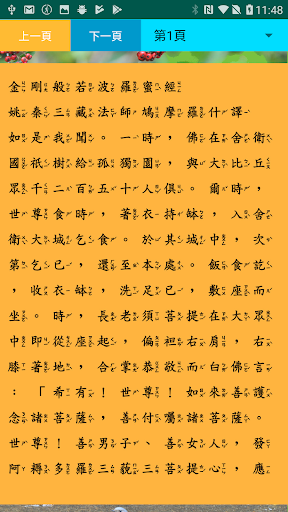 11:48
上一頁 下一頁 第1頁
金剛般若波羅蜜經
姚秦三藏法師鳩摩羅什譯
如是我聞。一時，佛在舍衛
國祇樹給孤獨園，與大比丘
眾千二百五十人俱。爾時，
世尊食時，著衣持缽，入舍
衛大城乞食。於其城中，次
第乞已，還至本處。飯食訖
，收衣缽，洗足已，敷座而
坐。時，長老須菩提在大眾
中即從座起，偏袒右肩，右
膝著地，合掌恭敬而白佛言
：「希有！世尊！如來善護
念諸菩薩，善付囑諸菩薩。
世尊！善男子、善女人，發
阿耨多羅三藐三菩提心，應